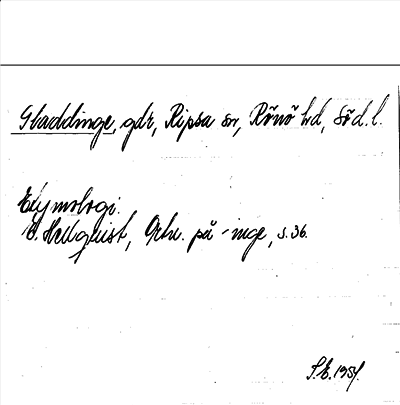 Gladdinge, gdr, Ripsa sn, Rönö hd, Söd. l.
Etymologi.
E. Hellquist, Ortn. på -inge, s. 36.
S.E. 1951.